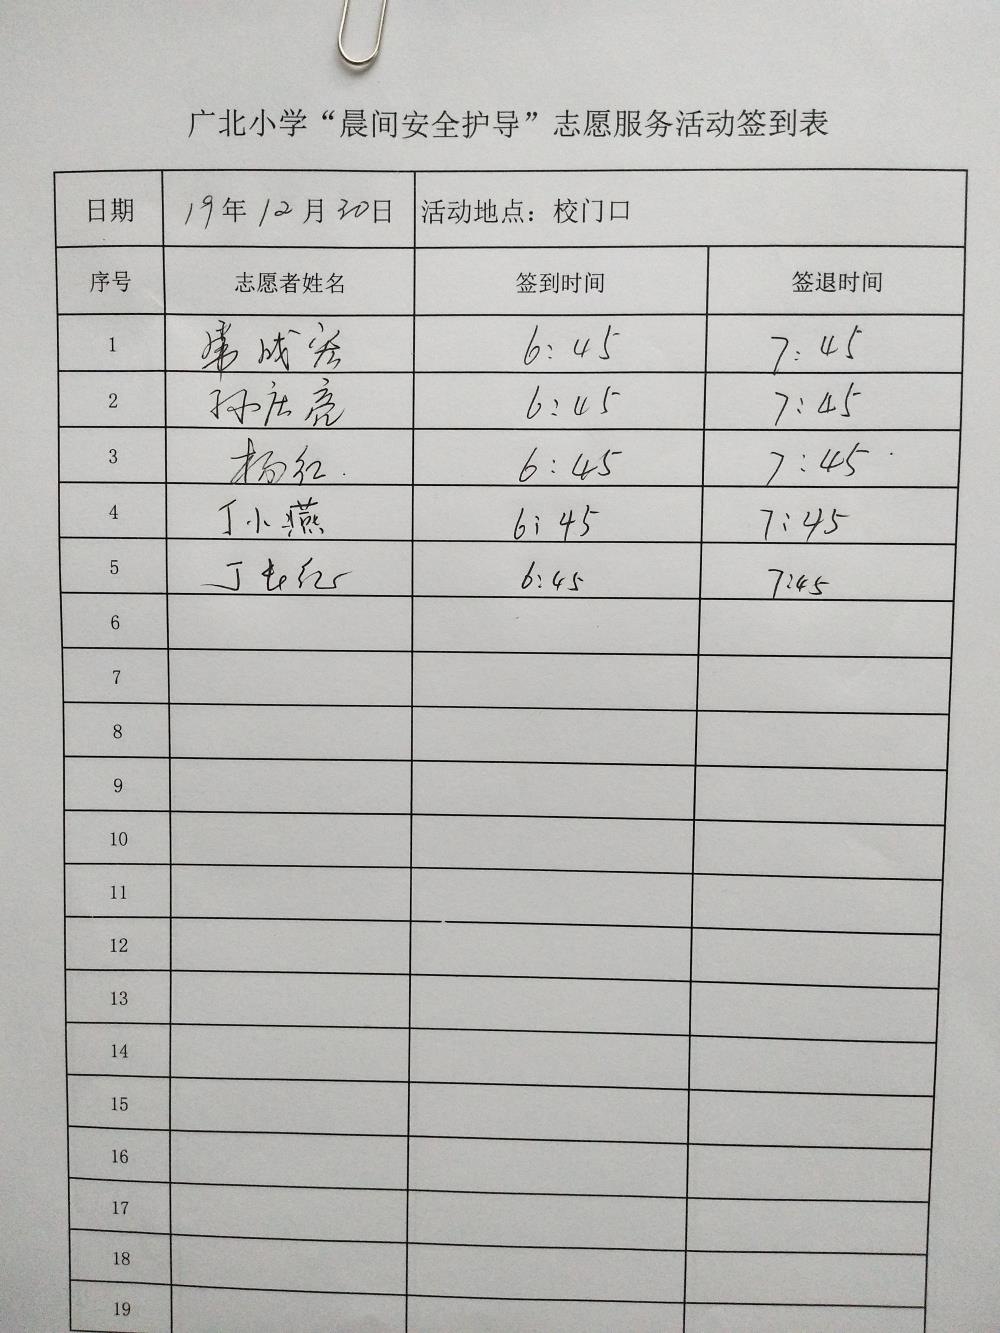 广北小学“晨间安全护导”志愿服务活动签到表
日期 19年12月30日 活动地点：校门口
序号 志愿者姓名 签到时间 签退时间
1 成 6:45 7:45
2 孙庆亮 6:45 7:45
3 杨红 6:45 7:45
4 丁小燕 6:45 7:45
5 丁长红 6:45 7:45
6
7
8
9
10
11
12
13
14
15
16
17
18
19